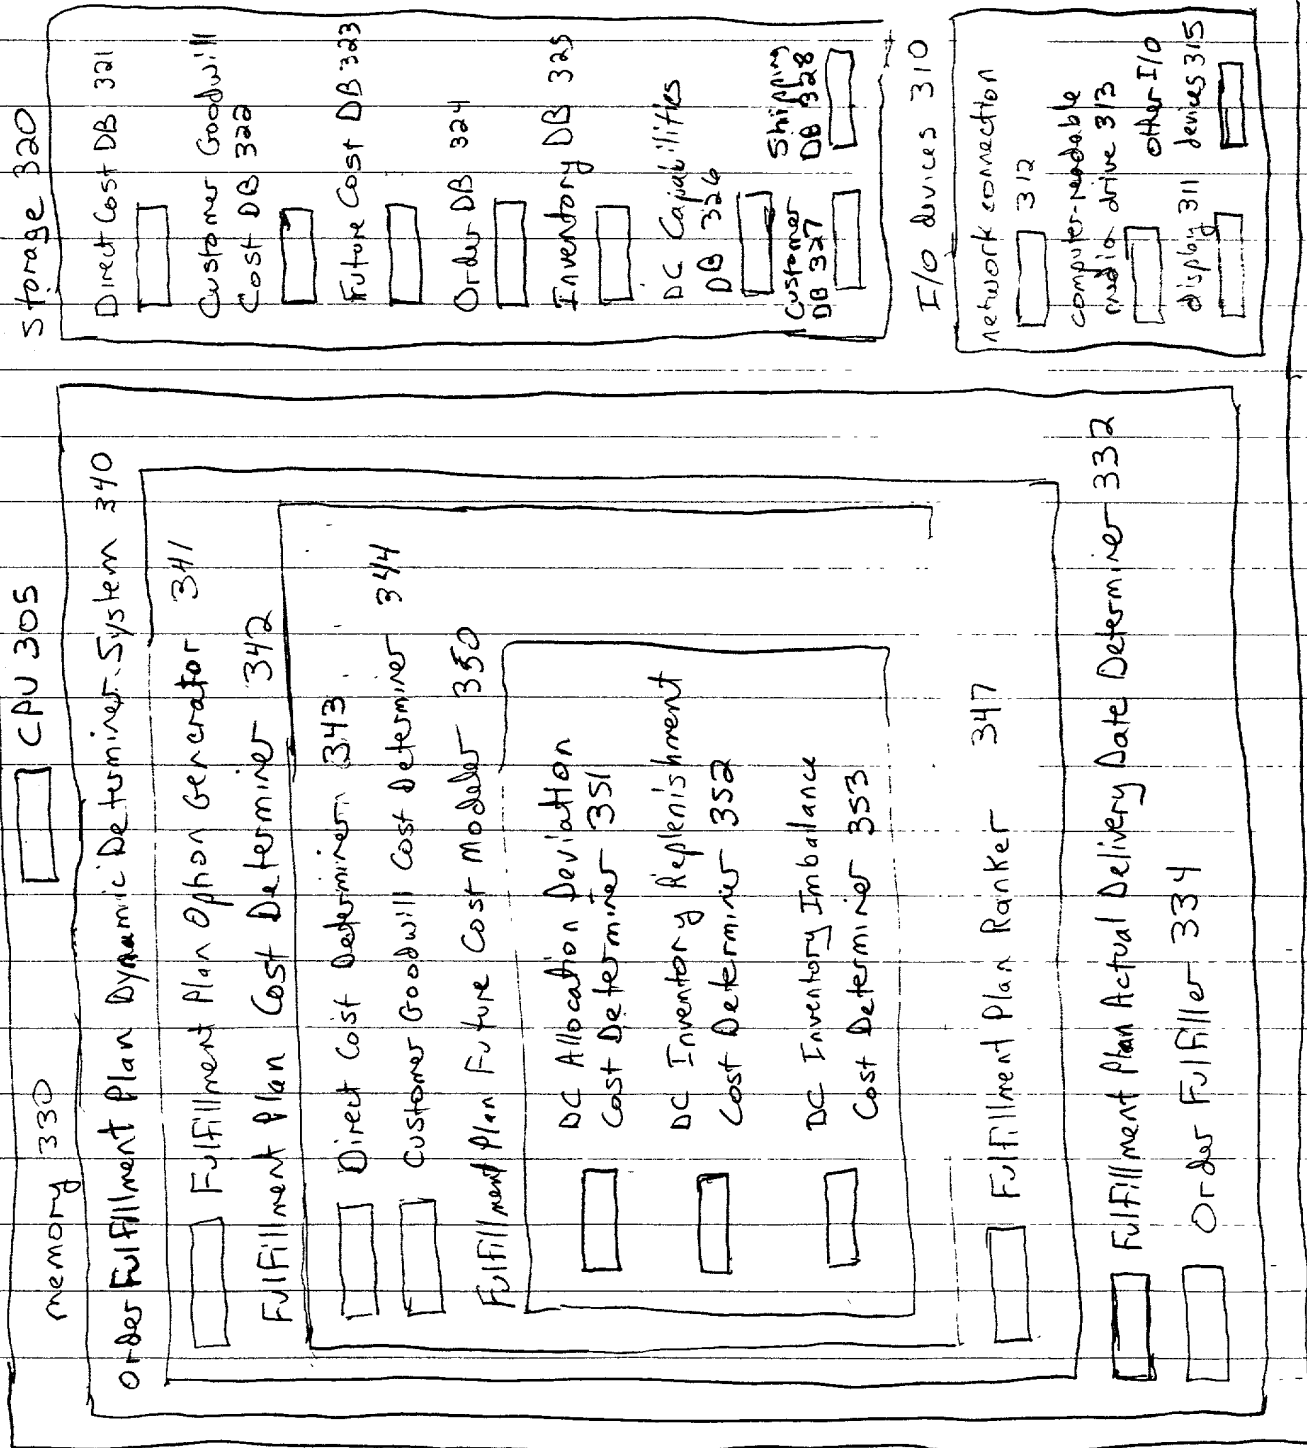 CPU 305
memory 330
Order Fulfillment Plan Dynamic Determiner System 340
Fulfillment Plan Option Generator 341
Fulfillment Plan Cost Determiner 342
Direct Cost Determiner 343
Customer Goodwill Cost Determiner 344
Fulfillment Plan Future Cost Modeler 350
DC Allocation Deviation
Cost Determiner 351
DC Inventory Replenishment
Cost Determiner 352
DC Inventory Imbalance
Cost Determiner 353
Fulfillment Plan Ranker 347
Fulfillment Plan Actual Delivery Date Determiner 332
Order Fulfiller 334
storage 320
Direct Cost DB 321
Customer Goodwill
Cost DB 322
Future Cost DB 323
Order DB 324
Inventory DB 325
DC Capabilities
DB 326
Customer
DB 327
Shipping
DB 328
I/O devices 310
network connection
312
computer-readable
media drive 313
display 311
other I/O
devices 315